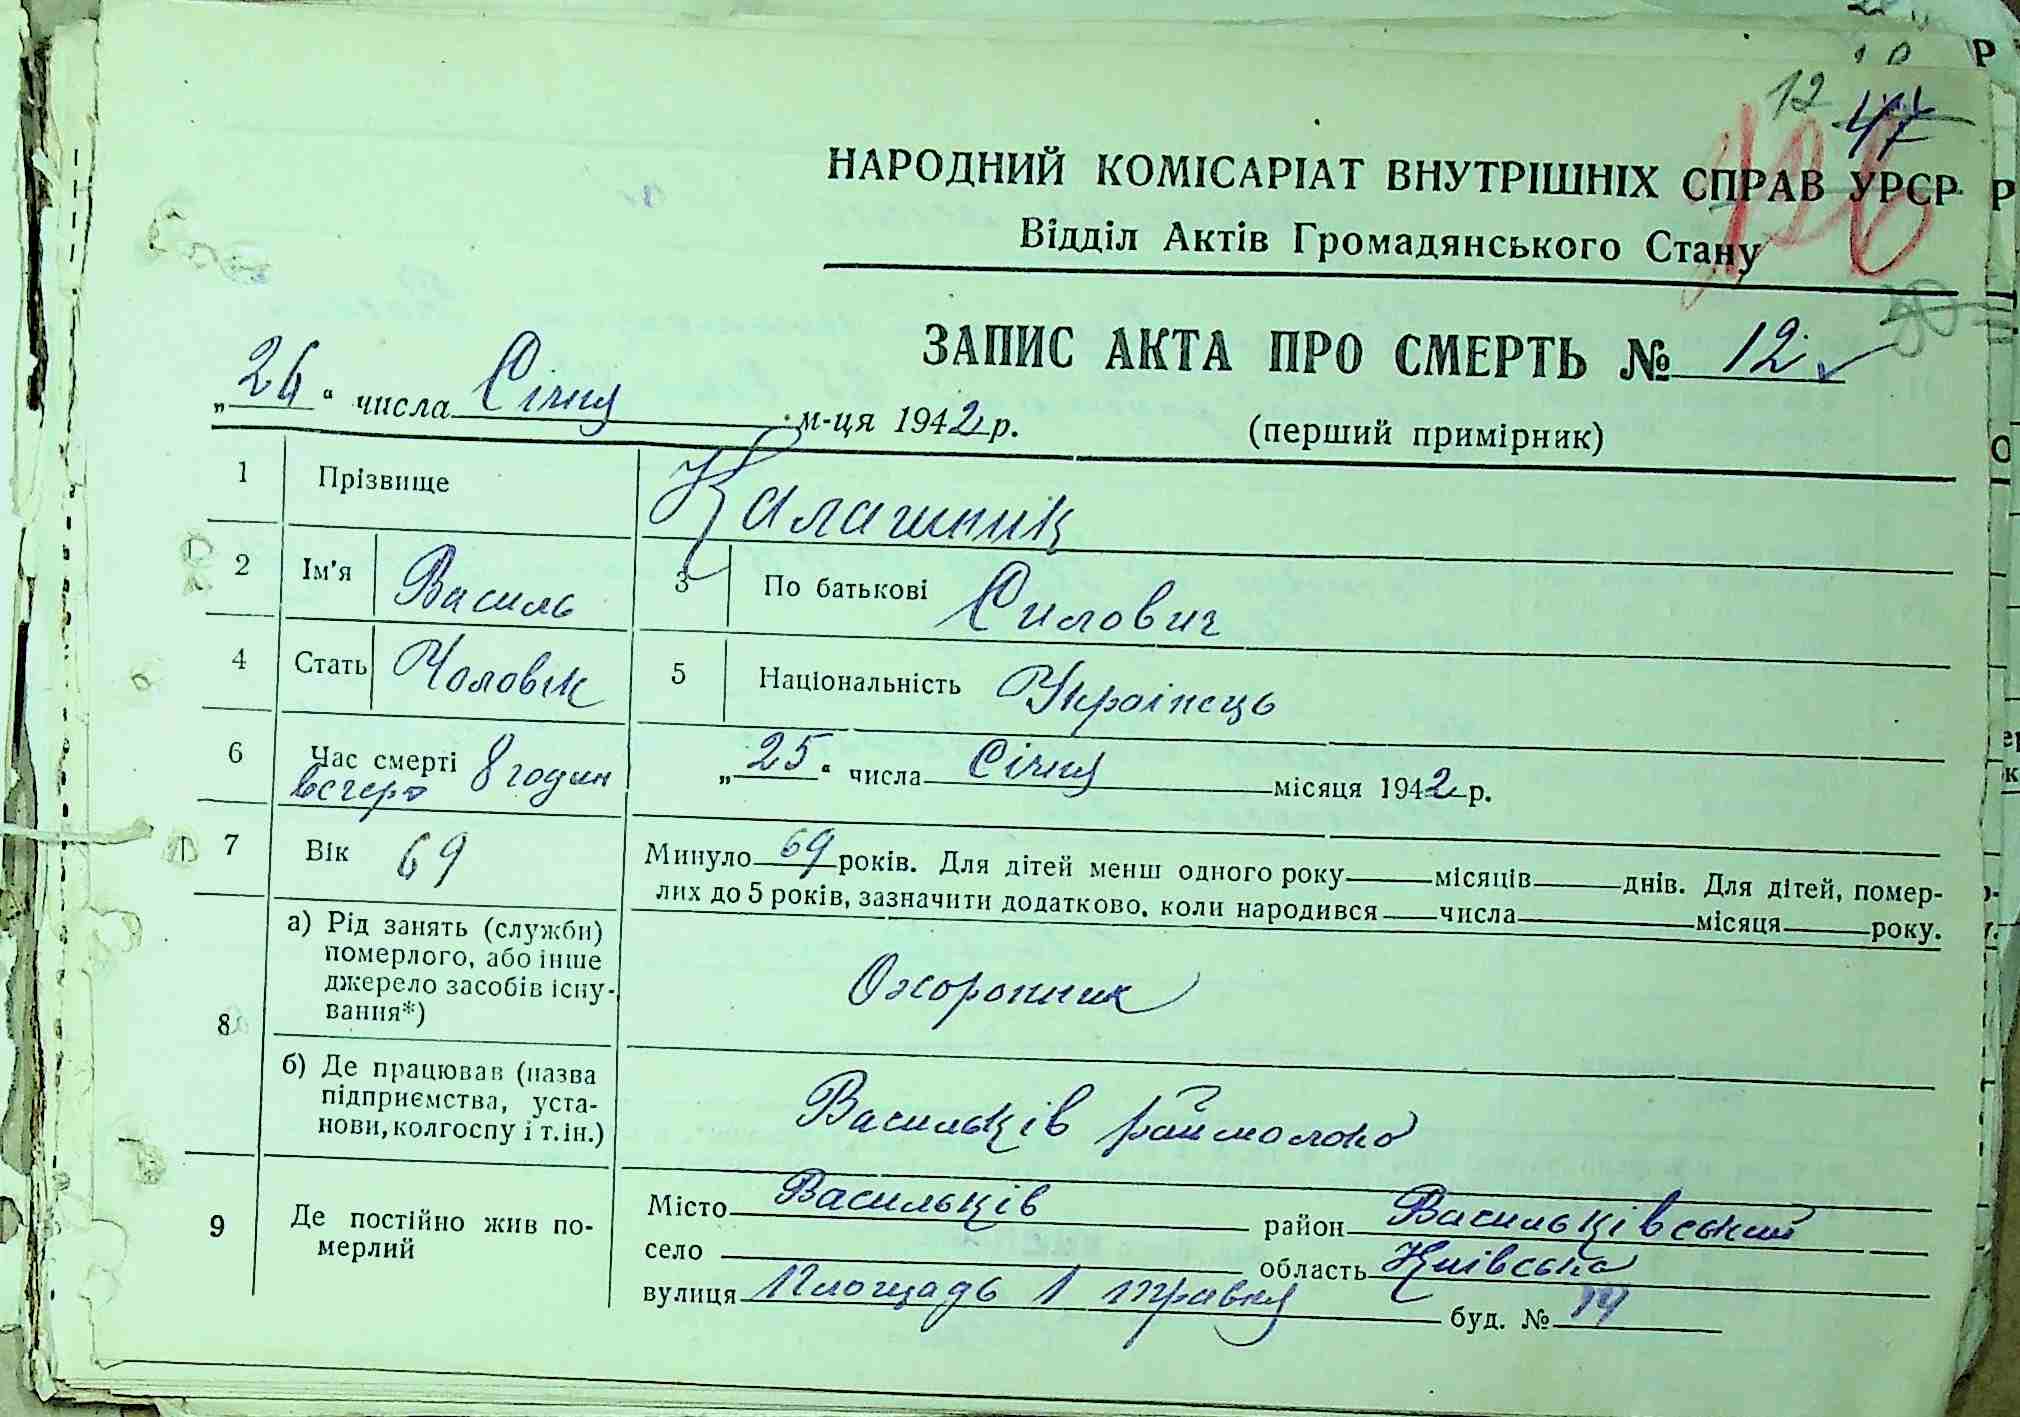 12 47
126
НАРОДНИЙ КОМІСАРІАТ ВНУТРІШНІХ СПРАВ УРСР
Відділ Актів Громадянського Стану
ЗАПИС АКТА ПРО СМЕРТЬ № 12
„26“ числа Січня м-ця 1942 р.
(перший примірник)
1 Прізвище Калашник
2 Ім'я Василь 3 По батькові Силович
4 Стать Чоловік 5 Національність Українець
6 Час смерті 8 годин вечера „25“ числа Січня місяця 1942 р.
7 Вік 69 Минуло 69 років. Для дітей менш одного року місяців днів. Для дітей, помер-
лих до 5 років, зазначити додатково, коли народився числа місяця року.
8 а) Рід занять (служби)
померлого, або інше
джерело засобів існу-
вання*)
Охоронник
б) Де працював (назва
підприємства, уста-
нови, колгоспу і т. ін.)
Васильків раймолоко
9 Де постійно жив по-
мерлий
Місто Васильків район Васильківський
село область Київська
вулиця Площадь 1 травня буд. № 14